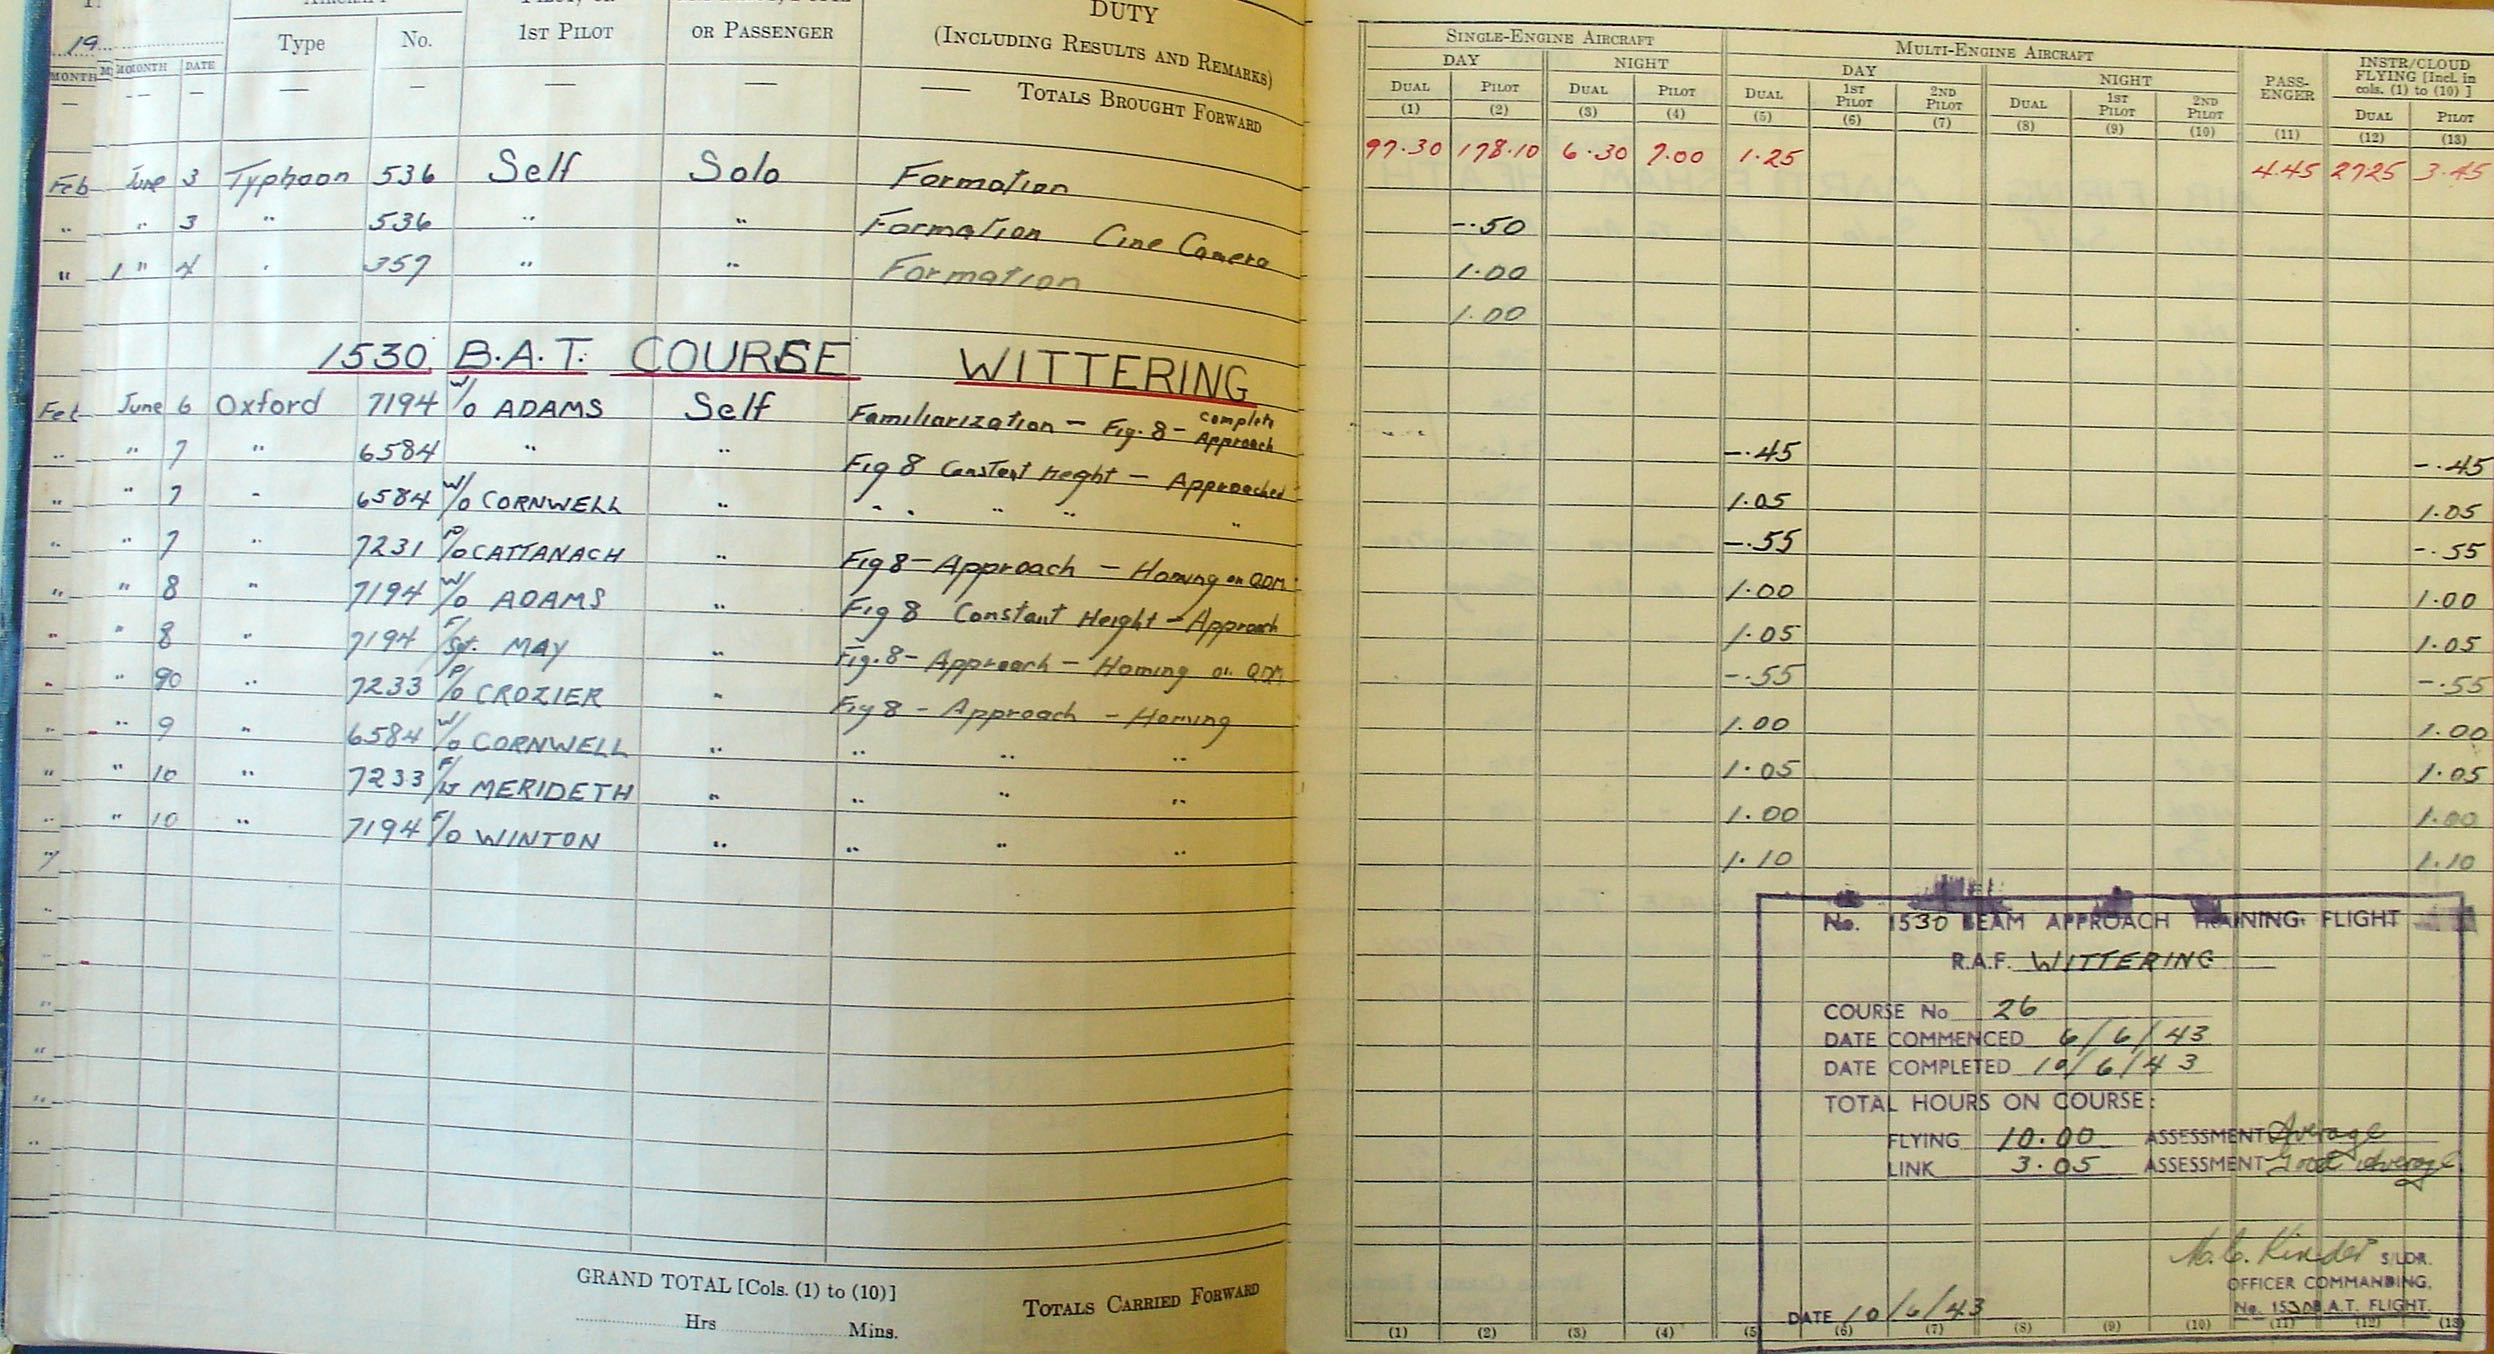 AIRCRAFT PILOT, OR 2ND PILOT, PUPIL DUTY
19 Type No. 1ST PILOT OR PASSENGER (INCLUDING RESULTS AND REMARKS)
MONTH MONTH DATE — — — — — TOTALS BROUGHT FORWARD
SINGLE-ENGINE AIRCRAFT MULTI-ENGINE AIRCRAFT PASS-ENGER INSTR/CLOUD FLYING [Incl. in cols. (1) to (10)]
DAY NIGHT DAY NIGHT
DUAL PILOT DUAL PILOT DUAL 1ST PILOT 2ND PILOT DUAL 1ST PILOT 2ND PILOT DUAL PILOT
(1) (2) (3) (4) (5) (6) (7) (8) (9) (10) (11) (12) (13)
97.30 178.10 6.30 7.00 1.25 4.45 2725 3.45
Feb June 3 Typhoon 536 Self Solo Formation -.50
" " 3 " 536 " " Formation Cine Camera 1.00
" 1 " 4 " 357 " " Formation 1.00
1530 B.A.T. COURSE WITTERING
Feb June 6 Oxford 7194 W/O ADAMS Self Familiarization – Fig. 8 – Complete Approach -.45 -.45
" " 7 " 6584 " " Fig 8 Constant Height – Approached 1.05 1.05
" " 7 " 6584 W/O CORNWELL " " " " " " -.55 -.55
" " 7 " 7231 P/O CATTANACH " Fig 8 – Approach – Homing on QDM 1.00 1.00
" " 8 " 7194 W/O ADAMS " Fig 8 Constant Height – Approach 1.05 1.05
" " 8 " 7194 F/Sgt. MAY " Fig. 8 – Approach – Homing on QDM -.55 -.55
" " 90 " 7233 P/O CROZIER " Fig 8 – Approach – Homing 1.00 1.00
" " 9 " 6584 W/O CORNWELL " " " " 1.05 1.05
" " 10 " 7233 F/Lt MERIDETH " " " " 1.00 1.00
" " 10 " 7194 F/O WINTON " " " " 1.10 1.10
No. 1530 BEAM APPROACH TRAINING FLIGHT
R.A.F. WITTERING
COURSE No 26
DATE COMMENCED 6/6/43
DATE COMPLETED 10/6/43
TOTAL HOURS ON COURSE:
FLYING 10.00 ASSESSMENT Average
LINK 3.05 ASSESSMENT Good Average
M.C. Kinder S/LDR.
OFFICER COMMANDING.
No. 1530 B.A.T. FLIGHT.
DATE 10/6/43
GRAND TOTAL [Cols. (1) to (10)]
Hrs Mins.
TOTALS CARRIED FORWARD
(1) (2) (3) (4) (5) (6) (7) (8) (9) (10) (11) (12) (13)